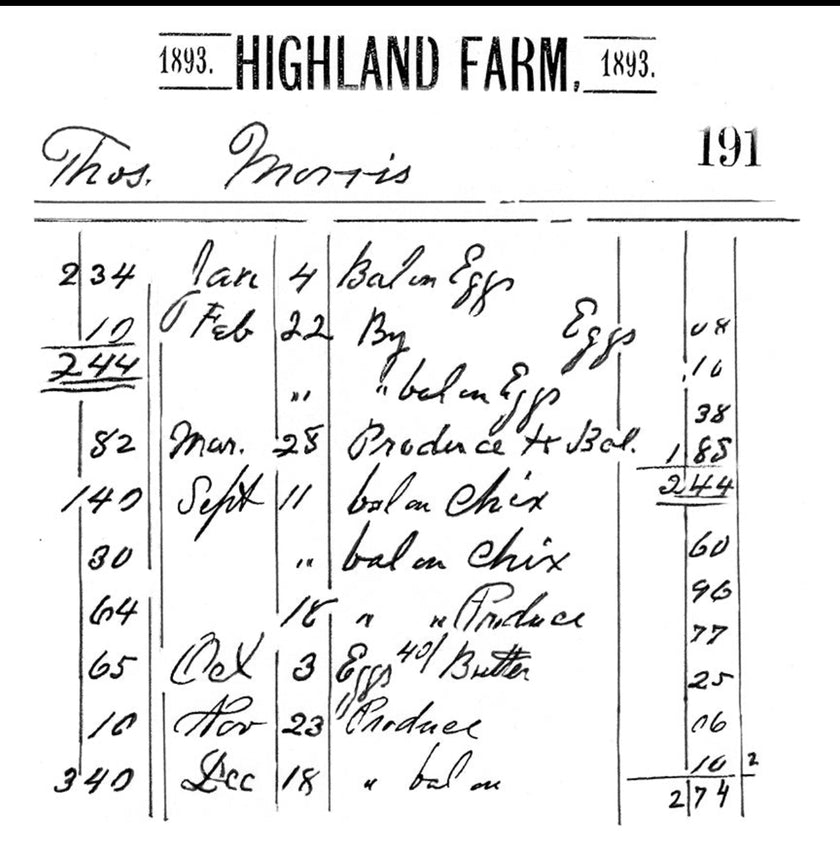 1893. HIGHLAND FARM, 1893.
Thos. Morris 191
2 34 Jan 4 Bal on Eggs
10 Feb 22 By Eggs 08
2 44 " " bal on Eggs .16
38
82 Mar. 28 Produce to Bal. 1 85
1 40 Sept 11 bal on Chix 2 44
30 " bal on Chix 60
64 18 " " Produce 96
77
65 Oct 3 Eggs 40/ Butter 25
10 Nov 23 Produce 06
3 40 Dec 18 " bal on 10 2
2 74